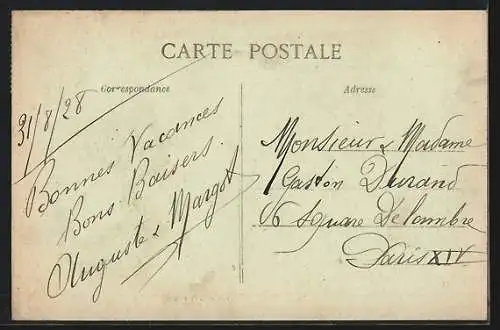 CARTE POSTALE
Correspondance
31/8/28
Bonnes Vacances
Bons Baisers.
Auguste & Margot
Adresse
Monsieur & Madame
Gaston Durand
6 square Delambre
Paris XIV